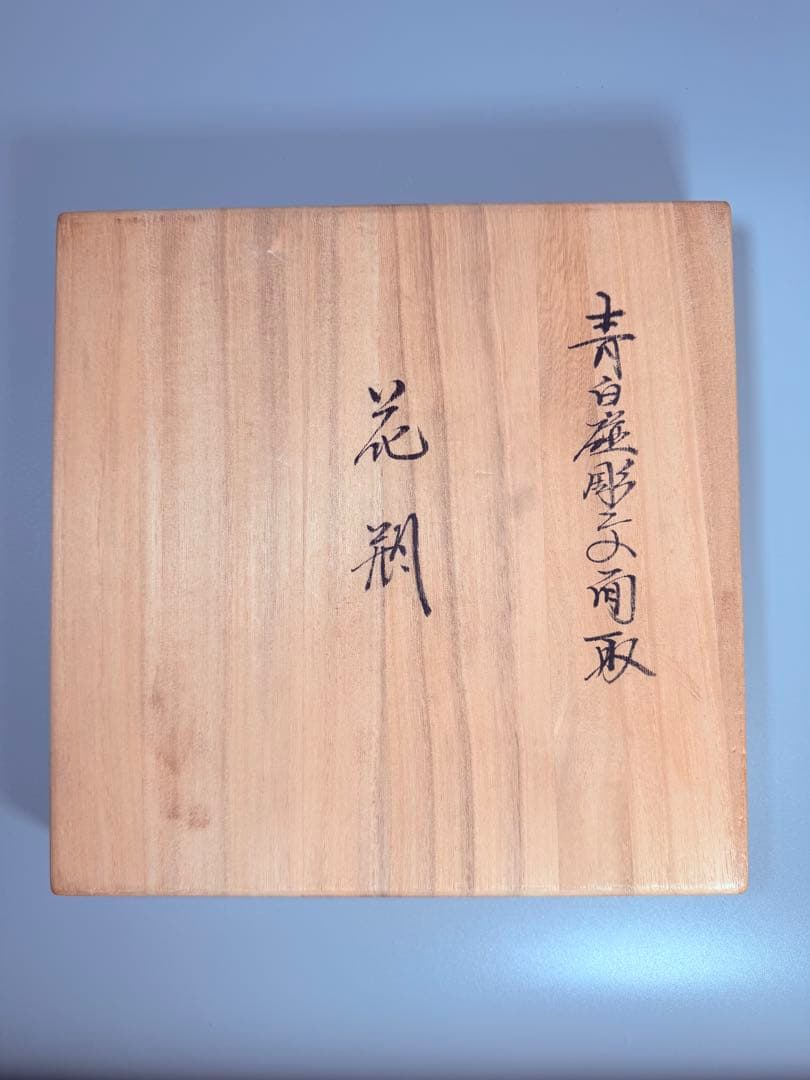 青白磁彫文面取
花瓶